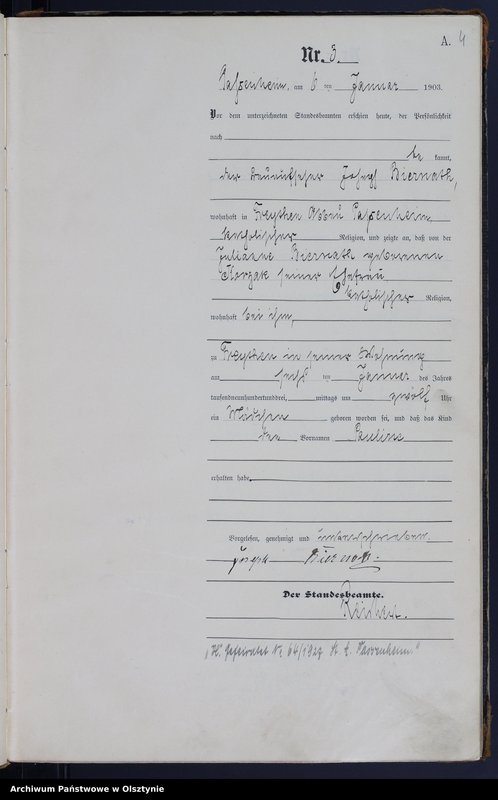 A. 4
Nr. 3.
Passenheim, am 6 ten Januar 1903.
Vor dem unterzeichneten Standesbeamten erschien heute, der Persönlichkeit
nach
be kannt,
der Joseph Biernath,
wohnhaft in Abbau Passenheim
katholischer Religion, und zeigte an, daß von der
Julianne Biernath geborenen
seiner Ehefrau
katholischer Religion,
wohnhaft bei ihm,
zu in seiner Wohnung
am ten Januar des Jahres
tausendneunhundertunddrei, mittags um zwölf Uhr
ein Mädchen geboren worden sei, und daß das Kind
den Vornamen Pauline
erhalten habe.
Vorgelesen, genehmigt und unterschrieben.
Joseph Biernath
Der Standesbeamte.
Geheiratet Nr. 64/1927 St. A. Passenheim."
Archiwum Państwowe w Olsztynie